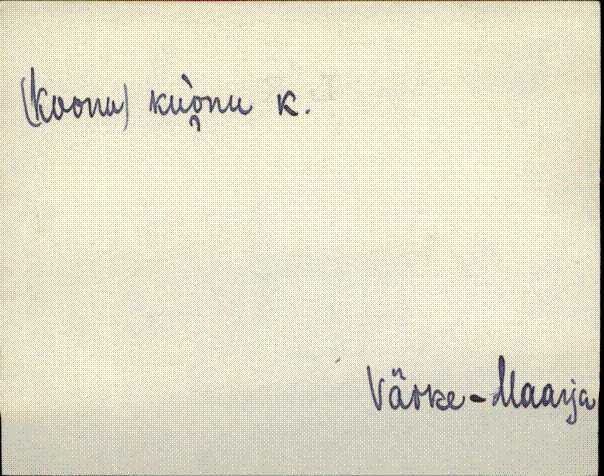 (Koonu) kùo̭nu k.
Väike-Maarja